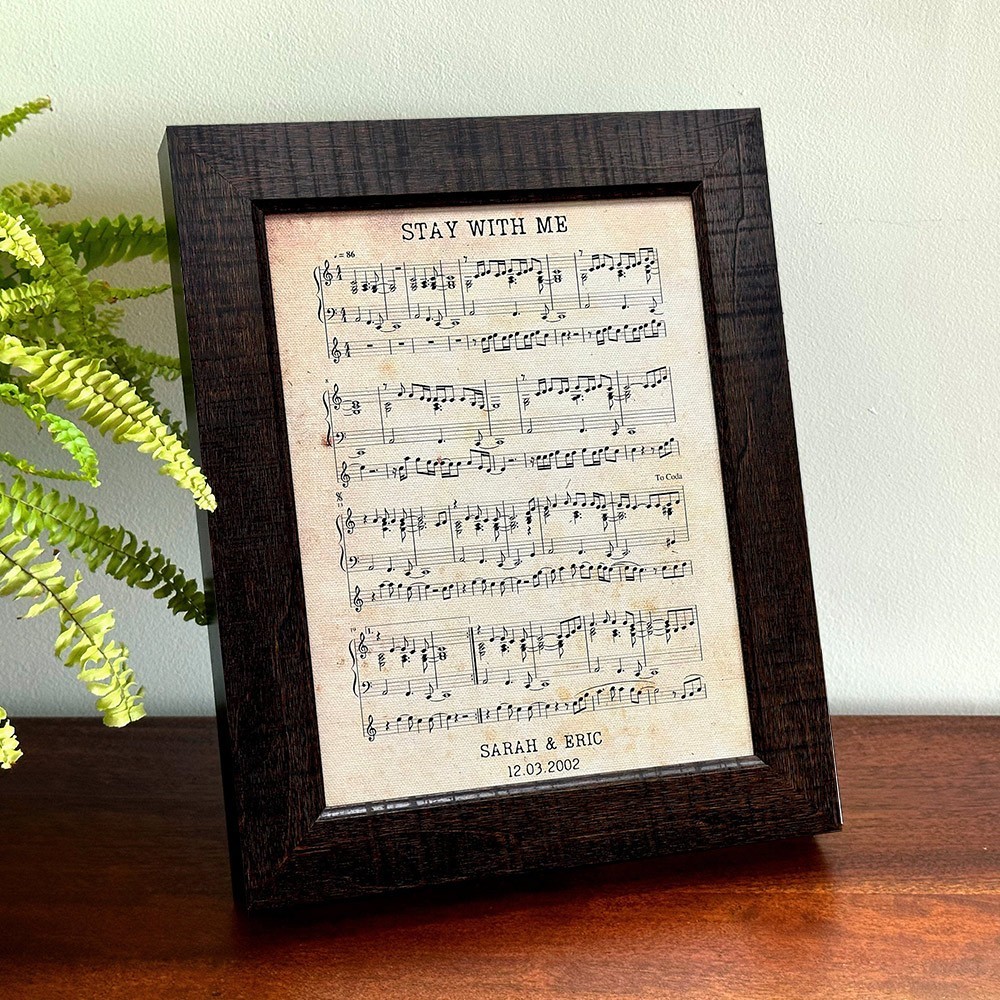 STAY WITH ME
♩ = 86
To Coda
1.
SARAH & ERIC
12.03.2002